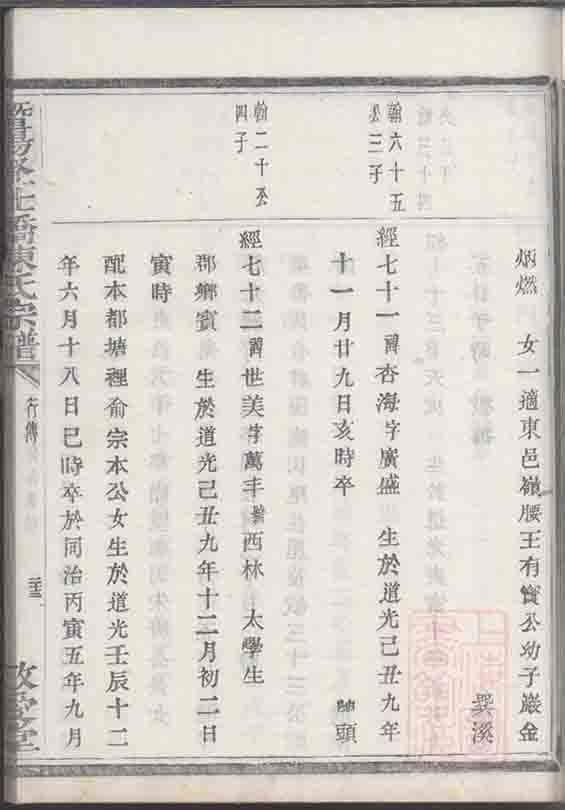 炳燃　女一適東邑嶺腰王有寶公幼子巖金
巽溪
翰六十五
公三子
經七十一諱杏海字廣盛　生於道光己丑九年
十一月廿九日亥時卒　陳頭
翰二十公
四子
經七十二諱世美字萬丰號西林　太學生
郡鄉賓　生於道光己丑九年十二月初二日
寅時
配本都塘裡俞宗本公女生於道光壬辰十二
年六月十八日巳時卒於同治丙寅五年九月
橋陳氏宗譜
行傳
敬愛堂